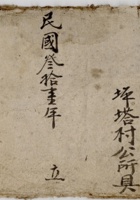 坪塔村公所具
民國叁拾壹年
立